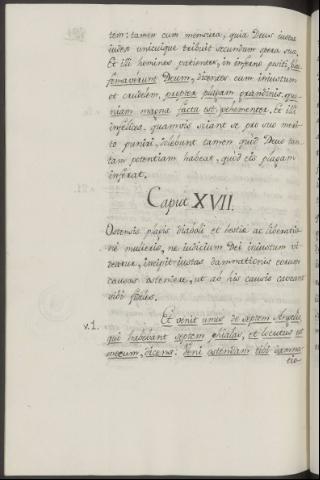 tem: tamen cum mensura, quia Deus iustus
iudex unicuique tribuit secundum opera sua,
Et illi homines patientes, in inferno positi, blas
femaverunt Deum, dicentes eum iniustum
et crudelem, propter plagam grandinis, quo
niam magna facta est vehementer. Et illi
infelices, quamvis sciant se pro suo meri
to puniri, dolebunt tamen quod Deus tan
tam potentiam habeat, quod eis plagam
inferat.
Caput XVII.
Ostensis plagis diaboli et bestiæ ac liberatio
ne mulieris, ne iudicium Dei iniustum vi
deatur, incipit iustas damnationis eorum
causas ostendere, ut ab his causis caveant
sibi fideles.
v. 1. Et venit unus de septem Angelis,
qui habebant septem phialas, et locutus est
mecum, dicens: Veni ostendam tibi damna
tio